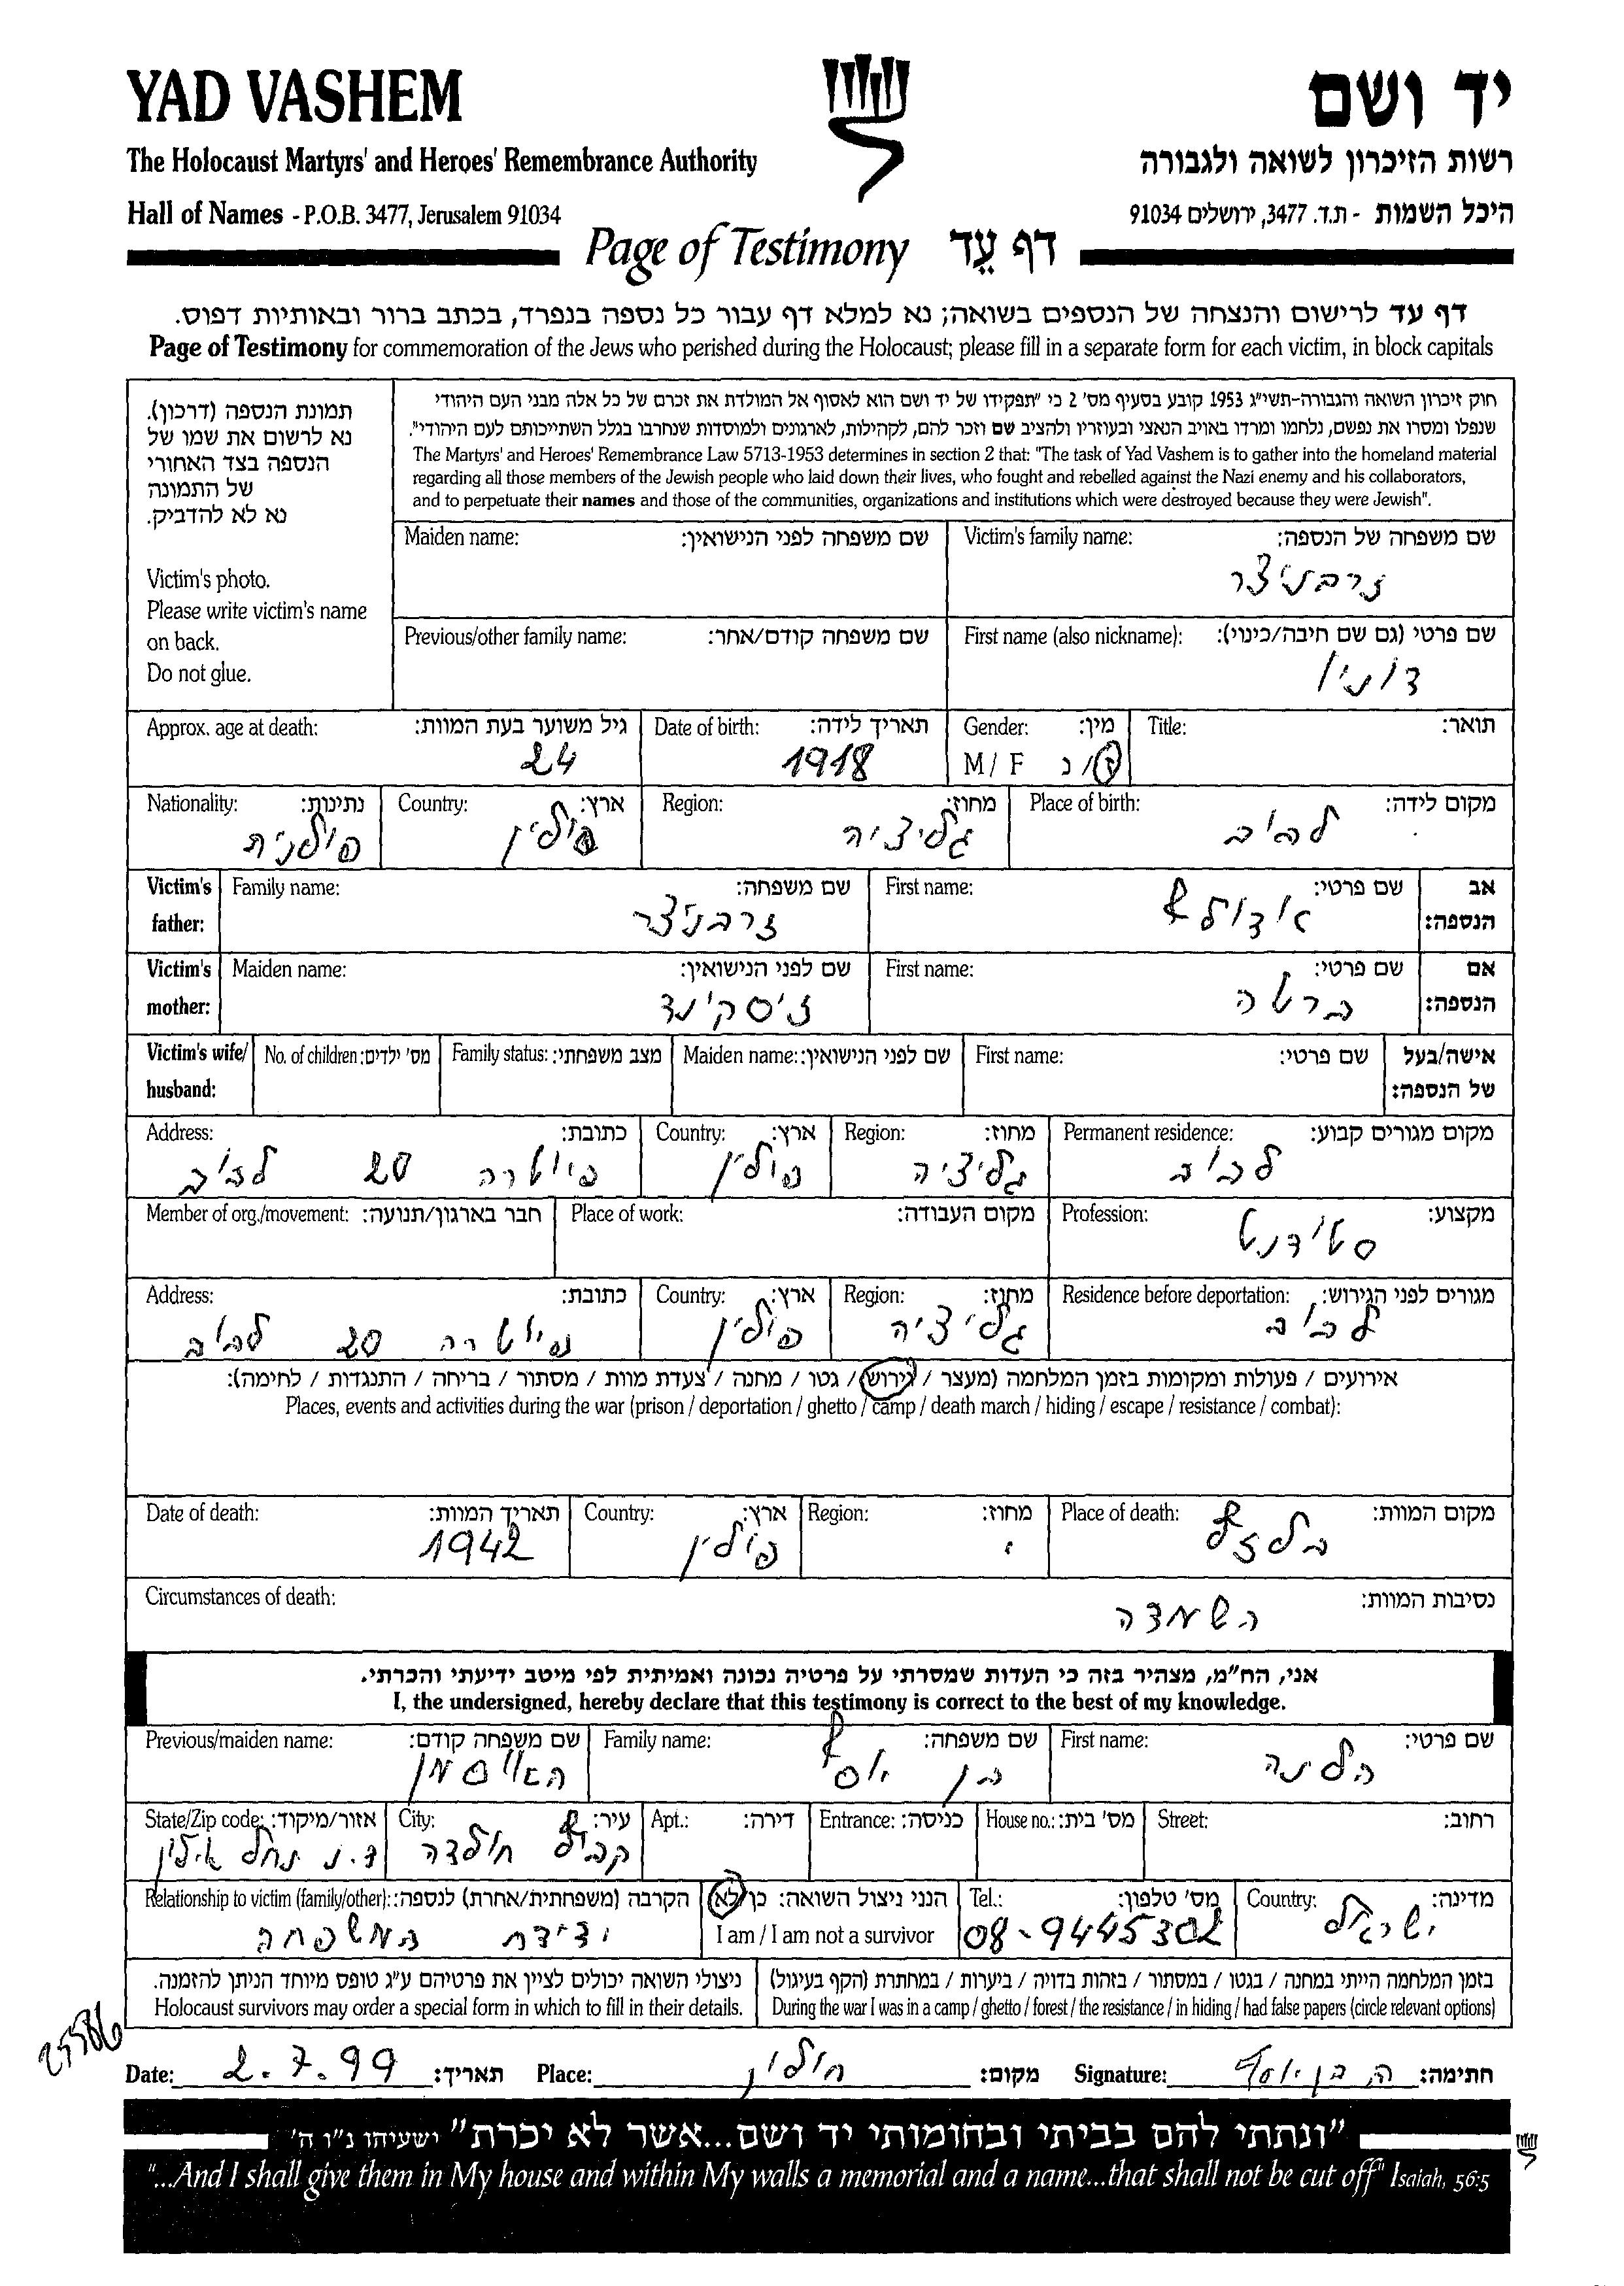 YAD VASHEM
יד ושם
The Holocaust Martyrs' and Heroes' Remembrance Authority
רשות הזיכרון לשואה ולגבורה
Hall of Names - P.O.B. 3477, Jerusalem 91034
היכל השמות - ת.ד. 3477, ירושלים 91034
Page of Testimony דף עֵד
דף עד לרישום והנצחה של הנספים בשואה; נא למלא דף עבור כל נספה בנפרד, בכתב ברור ובאותיות דפוס.
Page of Testimony for commemoration of the Jews who perished during the Holocaust; please fill in a separate form for each victim, in block capitals
תמונת הנספה (דרכון).
נא לרשום את שמו של
הנספה בצד האחורי
של התמונה
נא לא להדביק.
Victim's photo.
Please write victim's name
on back.
Do not glue.
חוק זיכרון השואה והגבורה-תשי"ג 1953 קובע בסעיף מס' 2 כי "תפקידו של יד ושם הוא לאסוף אל המולדת את זכרם של כל אלה מבני העם היהודי
שנפלו ומסרו את נפשם, נלחמו ומרדו באויב הנאצי ובעוזריו ולהציב שם וזכר להם, לקהילות, לארגונים ולמוסדות שנחרבו בגלל השתייכותם לעם היהודי".
The Martyrs' and Heroes' Remembrance Law 5713-1953 determines in section 2 that: "The task of Yad Vashem is to gather into the homeland material
regarding all those members of the Jewish people who laid down their lives, who fought and rebelled against the Nazi enemy and his collaborators,
and to perpetuate their names and those of the communities, organizations and institutions which were destroyed because they were Jewish".
Victim's family name: שם משפחה של הנספה:
זרבניצר
Maiden name: שם משפחה לפני הנישואין:
First name (also nickname): שם פרטי (גם שם חיבה/כינוי):
דוניו
Previous/other family name: שם משפחה קודם/אחר:
Title: תואר:
Gender: מין:
M / F ז/נ
Date of birth: תאריך לידה:
1918
Approx. age at death: גיל משוער בעת המוות:
24
Place of birth: מקום לידה:
לבוב
Region: מחוז:
גליציה
Country: ארץ:
פולין
Nationality: נתינות:
פולנית
אב הנספה:
First name: שם פרטי:
אדולף
Family name: שם משפחה:
זרבניצר
Victim's father:
אם הנספה:
First name: שם פרטי:
ברטה
Maiden name: שם לפני הנישואין:
זיסקינד
Victim's mother:
אישה/בעל של הנספה:
First name: שם פרטי:
Maiden name: שם לפני הנישואין:
Family status: מצב משפחתי:
No. of children: מס' ילדים:
Victim's wife/ husband:
Permanent residence: מקום מגורים קבוע:
לבוב
Region: מחוז:
גליציה
Country: ארץ:
פולין
Address: כתובת:
20 לבוב
Profession: מקצוע:
סטודנט
Place of work: מקום העבודה:
Member of org./movement: חבר בארגון/תנועה:
Residence before deportation: מגורים לפני הגירוש:
לבוב
Region: מחוז:
גליציה
Country: ארץ:
פולין
Address: כתובת:
20 לבוב
אירועים / פעולות ומקומות בזמן המלחמה (מעצר / גירוש / גטו / מחנה / צעדת מוות / מסתור / בריחה / התנגדות / לחימה):
Places, events and activities during the war (prison / deportation / ghetto / camp / death march / hiding / escape / resistance / combat):
Place of death: מקום המוות:
בלזץ
Region: מחוז:
Country: ארץ:
פולין
Date of death: תאריך המוות:
1942
Circumstances of death: נסיבות המוות:
השמדה
אני, הח"מ, מצהיר בזה כי העדות שמסרתי על פרטיה נכונה ואמיתית לפי מיטב ידיעתי והכרתי.
I, the undersigned, hereby declare that this testimony is correct to the best of my knowledge.
First name: שם פרטי:
הלינה
Family name: שם משפחה:
בן יוסף
Previous/maiden name: שם משפחה קודם:
האוסמן
Street: רחוב:
House no.: מס' בית:
Entrance: כניסה:
Apt.: דירה:
City: עיר:
קבוץ חולדה
State/Zip code: אזור/מיקוד:
ד.נ נחל אילון
Country: מדינה:
ישראל
Tel.: מס' טלפון:
08-9445302
הנני ניצול השואה: כן/לא
I am / I am not a survivor
Relationship to victim (family/other): הקרבה (משפחתית/אחרת) לנספה:
ידידת המשפחה
בזמן המלחמה הייתי במחנה / בגטו / במסתור / בזהות בדויה / ביערות / במחתרת (הקף בעיגול)
During the war I was in a camp / ghetto / forest / the resistance / in hiding / had false papers (circle relevant options)
ניצולי השואה יכולים לציין את פרטיהם ע"ג טופס מיוחד הניתן להזמנה.
Holocaust survivors may order a special form in which to fill in their details.
Date: 2.7.99 תאריך: Place: חולון מקום: Signature: ה. בן יוסף חתימה:
"ונתתי להם בביתי ובחומותי יד ושם...אשר לא יכרת" ישעיהו נ"ו ה'
"...And I shall give them in My house and within My walls a memorial and a name...that shall not be cut off" Isaiah, 56:5